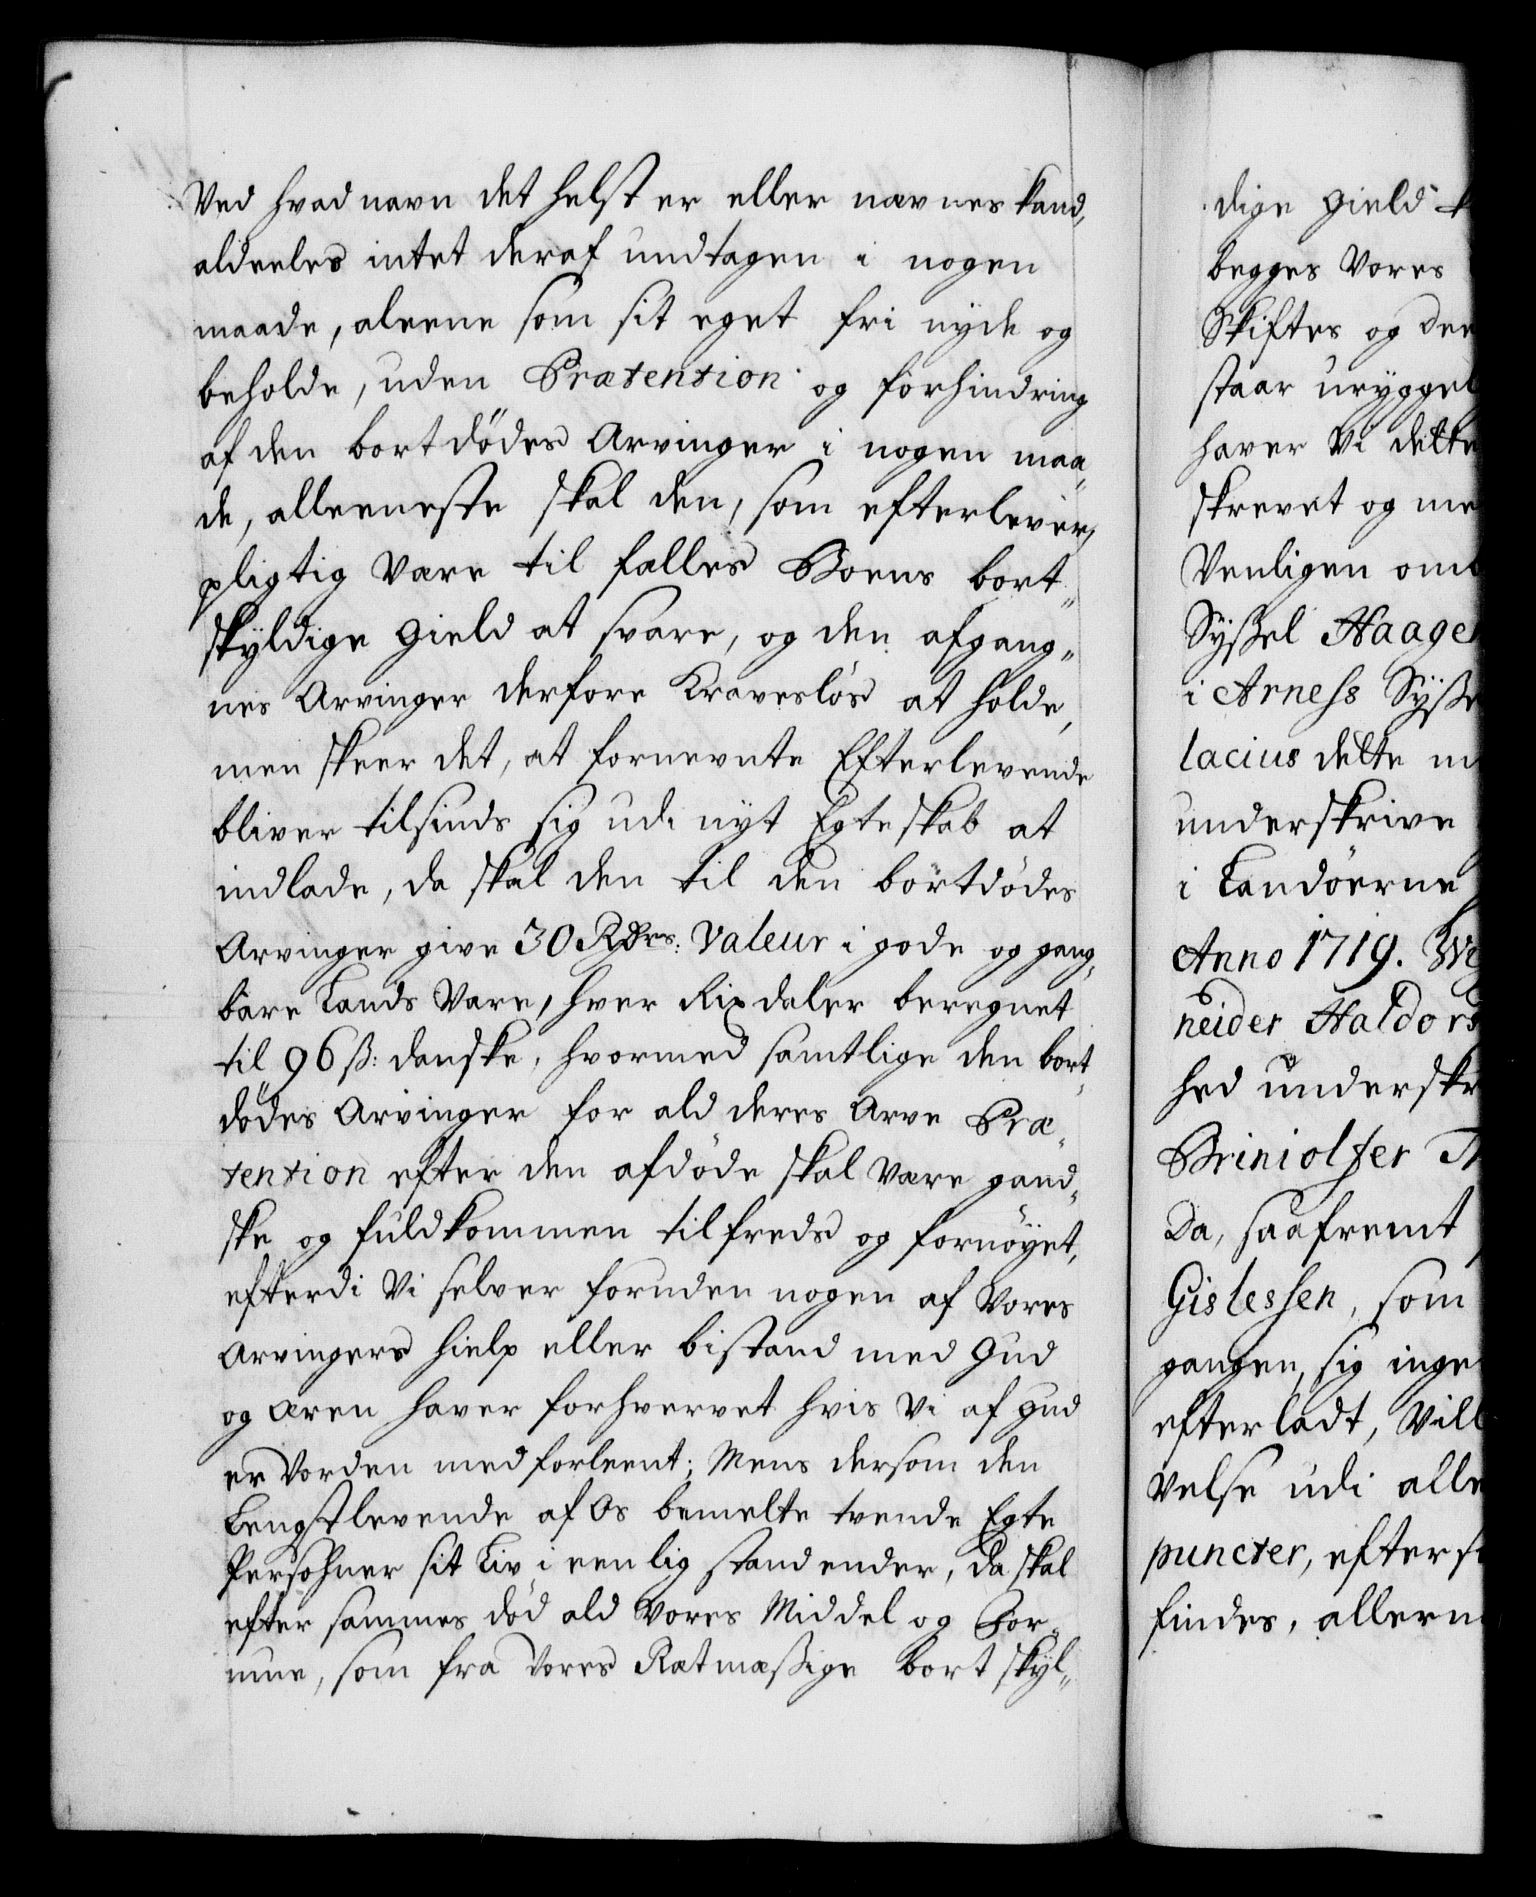 Ved hvad navn det helst er eller nævnes kand,
aldeeles intet deraf undtagen i nogen
maade, aleene som sit eget fri nyde og
beholde, uden Prætention og forhindring
af den bortdödes Arvinger i nogen maa„
de, alleeneste skal den, som efterlever,
pligtig være til fælles Boens bort„
skyldige Gield at svare, og den afgang„
nes Arvinger derfore Kravesløs at holde,
men skeer det, at fornevnte Efterlevende
bliver tilsinds sig udi nyt Egteskab at
indlade, da skal den til den bortdödes
Arvinger give 30 Rdrs: Valeur i gode og gang„
bare Lands Vare, hver Rixdaler beregnet
til 96 ß: danske, hvormed samtlige den bort„
dödes Arvinger for ald deres Arve Præ„
tention efter den afdöde skal være gand„
ske og fuldkommen tilfreds og fornöyet,
efterdi Vi selver foruden nogen af Vores
Arvingers hielp eller bistand med Gud
og æren haver forhvervet hvis Vi af Gud
er vorden med forleent; Mens dersom den
Lengstlevende af Os bemelte tvende Egte
Persohner sit Liv i eenlig stand ender, da skal
efter sammes död ald Vores Middel og For„
mue, som fra Vores Rætmæßige bort skyl„
dige Gield
begges Vores
Skiftes og
staar uryggel
haver Vi dette
skrevet og
Venligen
Syßel Haagen
i Arness Syße
lacius dette
underskrive
i Landöerne
Anno 1719.
neider Haldors
hed underskr
Briniolfer
Da, saafremt
Gislessen, som
gangen, sig inge
efterladt, Vill
velse udi alle
puncter, efter
findes, allern